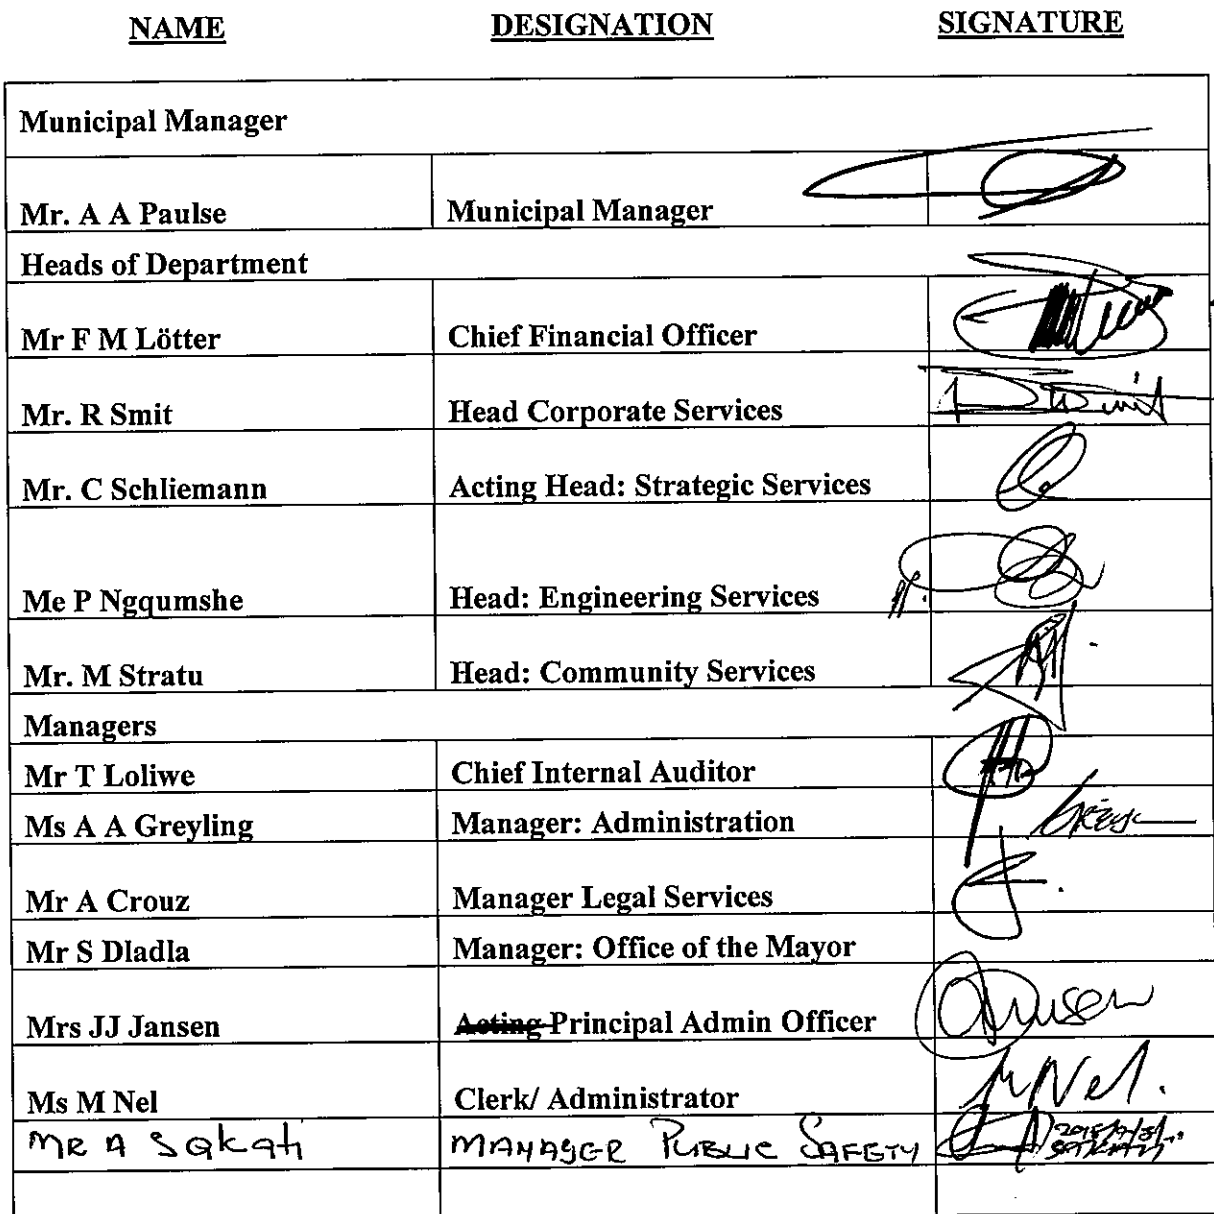 NAME DESIGNATION SIGNATURE
Municipal Manager
Mr. A A Paulse Municipal Manager
Heads of Department
Mr F M Lötter Chief Financial Officer
Mr. R Smit Head Corporate Services
Mr. C Schliemann Acting Head: Strategic Services
Me P Ngqumshe Head: Engineering Services
Mr. M Stratu Head: Community Services
Managers
Mr T Loliwe Chief Internal Auditor
Ms A A Greyling Manager: Administration
Mr A Crouz Manager Legal Services
Mr S Dladla Manager: Office of the Mayor
Mrs JJ Jansen Acting Principal Admin Officer
Ms M Nel Clerk/ Administrator M Nel.
MR A Sakati MANAGER PUBLIC SAFETY